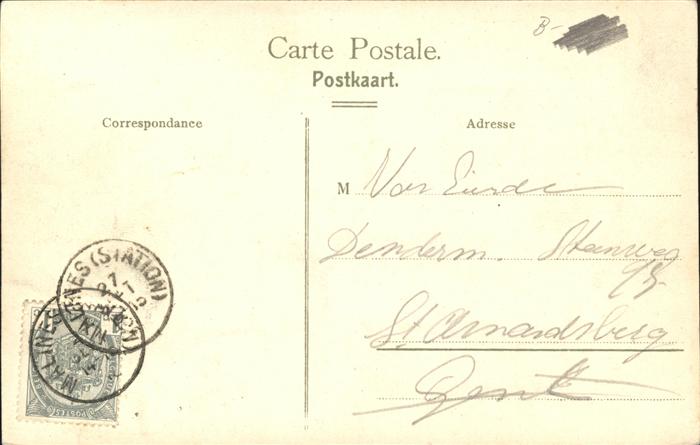 B-
Carte Postale.
Postkaart.
Correspondance
Adresse
M Van Eerde
Denderm. Steenweg
St Amandsberg
Gent
MALINES (STATION)
MECHELEN
POSTES